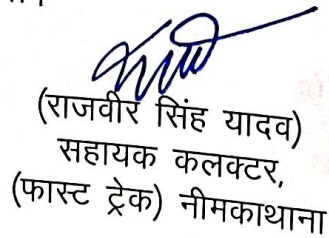 (राजवीर सिंह यादव)
सहायक कलक्टर,
(फास्ट ट्रेक) नीमकाथाना